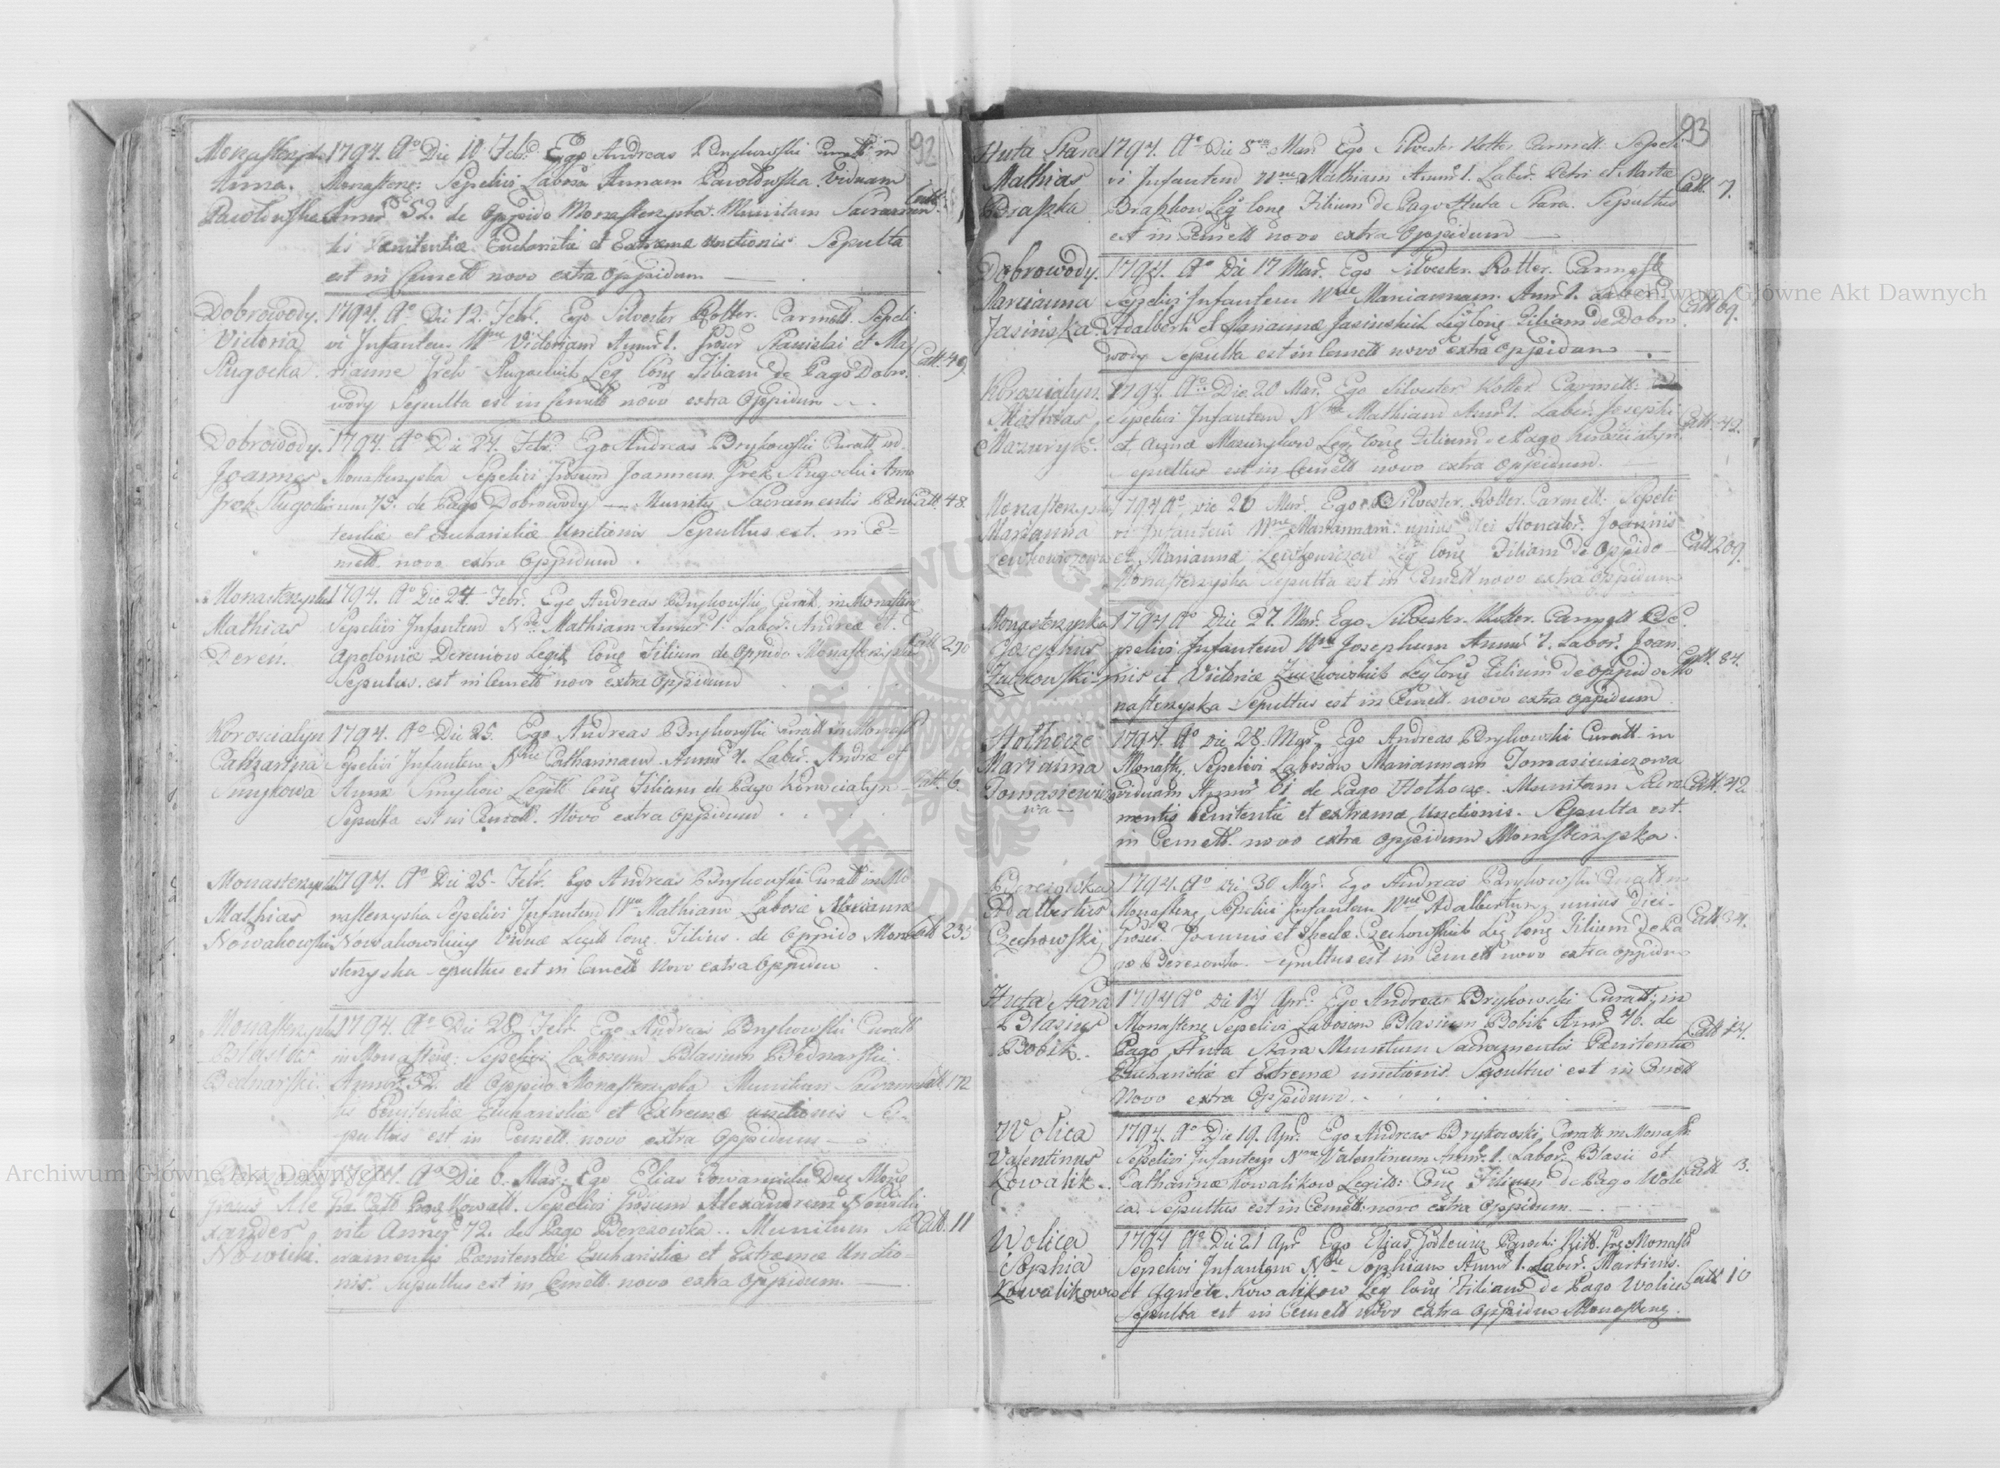 92
Monasterzyska
Anna
Pawłowska
1794. Aº Die 10 Febr. Ego Andreas Brykowski Curatt in
Monasterz: Sepelivi Labosā Annam Pawłowska Viduam
Annor 52. de Oppido Monasterzyska Munitam Sacramen
tis Pænitentiæ Eucharistiæ et Extremæ unctionis Sepulta
est in Cemett novo extra Oppidum
Dobrowody.
Victoria
Sługocka
1794. Aº Die 12. Febr. Ego Silvester Rotter. Carmett. Sepeli
vi Infantem Nne Victoriam Annor 1. Stanislai et Ma
rianne Leg Conj Filiam de Pago Dobro
wody Sepulta est in Cemett novo extra Oppidum
Catt. 49
Dobrowody.
Joannes
1794. Aº Die 24. Febr. Ego Andreas Brykowski Curatt in
Monasterzyska Sepelivi Joannem
75. de Pago Dobrowody Munitus Sacramentis Pæni
tentiæ et Eucharistiæ Unctionis Sepultus est. in Ce-
mett. novo extra Oppidum
Catt. 48
Monasterzyska
Mathias
Dereń.
1794. Aº Die 24. Febr. Ego Andreas Brykowski Curatt. in Monasterz
Sepelivi Infantem Nne Mathiam Annor 1. Labor. Andreæ et
Apoloniæ Dereniow Legit Conj Filium de Oppido Monasterzyska
Sepultus est in Cemett novo extra Oppidum
Catt 290
Korościatyn
Catharina
Smykowa
1794. Aº Die 25. Ego Andreas Brykowski Curatt in Monast
Sepelivi Infantem Nne Catharinam Annor 4. Labor. Andreæ et
Annæ Smykow Legitt Conj Filiam de Pago Korościatyn
Sepulta est in Cemett. Novo extra Oppidum
Catt. 6.
Monasterzyska
Mathias
Nowakowski
1794. Aº Die 25. Febr. Ego Andreas Brykowski Curatt in Mo
nasterzyska Sepelivi Infantem Nne Mathiam Labosæ Mariannæ
Viduæ Legitt Conj. Filius de Oppido Mona
sterzyska Sepultus est in Cemett Novo extra Oppidum
Catt 233
Monasterzyska
Blasius
Bednarski.
1794. Aº Die 28 Febr Ego Andreas Brykowski Curatt
in Monasterz: Sepelivi Labosum Blasium Bednarski
Annor 52. de Oppido Monasterzyska Munitum Sacramen
tis Pænitentiæ Eucharistiæ et Extremæ unctionis Se-
pultus est in Cemett. novo extra Oppidum
Catt. 172
Nowicki.
1794. Aº Die 6. Mar. Ego Elias
Sepelivi Alexandrum
Annor 72. de Pago Berezowka. Munitum Sa
cramentis Pænitentiæ Eucharistiæ et Extremæ Unctio-
nis. Sepultus est in Cemett. novo extra Oppidum.
Catt. 11
93
Huta Stara
Mathias
Braszka
1794. Aº Die 8va Mar. Ego Silvester Rotter Carmett. Sepeli
vi Infantem Nne Mathiam Annor 1. Labor. Petri et Marta
Braszkow Leg Conj Filium de Pago Huta Stara. Sepultus
est in Cemett novo extra Oppidum
Catt. 7.
Dobrowody.
Marianna
Jasińska
1794. Aº Die 17 Mar. Ego Silvester Rotter. Carmett
Sepelivi Infantem Nne Mariannam. Annor 1. Labor
Adalberti et Mariannæ Jasinskich Leg Conj Filiam de Dobro
wody Sepulta est in Cemett novo extra Oppidum
Catt 69.
Korościatyn.
Mathias
Mazuryk.
1794. Aº Die 20 Mar. Ego Silvester Rotter Carmett.
Sepelivi Infantem Nne Mathiam Annor 1. Labor. Josephi
et Agnæ Mazurykow Leg Conj Filium de Pago Korościatyn
Sepultus est in Cemett novo extra Oppidum.
Catt. 42.
Monasterzyska
Marianna
1794 Aº Die 26 Mar. Ego Silvester Rotter Carmett: Sepeli
vi Infantem Nne Mariannam unius Joannis
et Mariannæ Leg Conj Filiam de Oppido
Monasterzyska Sepulta est in Cemett novo extra Oppidum
Catt 209.
Monasterzyska
Josephus
Zuchowski
1794 Aº Die 27. Mar. Ego Silvester Rotter Carmett Se
pelivi Infantem Nne Josephum Annor 1. Labor. Joan
nis et Victoriæ Zuchowskich Leg Conj Filium de Oppido Mo
nasterzyska Sepultus est in Cemett. novo extra Oppidum
Catt. 84.
Hothocze
Marianna
Tomasiewiczo
wa
1794. Aº Die 28. Mar. Ego Andreas Brykowski Curatt in
Monastz. Sepelivi Labosam Mariannam Tomasiewiczowa
Viduam Annor 61 de Pago Hothocze. Munitam Sacra
mentis Pænitentiæ et extremæ Unctionis. Sepulta est
in Cemett. novo extra Oppidum Monasterzyska.
Catt. 42
Berezowka
Adalbertus
Czechowski
1794. Aº Die 30 Mar. Ego Andreas Brykowski Curatt in
Monasterz. Sepelivi Infantem Nne Adalbertum unius diei
Joannis et Theclæ Czechowskich Leg Conj Filium de Pa
go Berezowka Sepultus est in Cemett novo extra Oppidum
Catt 34.
Huta Stara
Blasius
Bobik.
1794 Aº Die 14 Apr: Ego Andreas Brykowski Curatt in
Monasterz Sepelivi Labosum Blasium Bobik Annor 46. de
Pago Huta Stara Munitum Sacramentis Pænitentiæ
Eucharistiæ et Extremæ unctionis. Sepultus est in Cemett
Novo extra Oppidum.
Catt 14.
Wolica
Valentinus
Kowalik.
1794. Aº Die 19. Apr. Ego Andreas Brykowski Curatt in Monast
Sepelivi Infantem Nne Valentinum Annor 1. Labor. Blasii et
Catharinæ Kowalikow Legitt: Conj Filium de Pago Woli
ca. Sepultus est in Cemett. novo extra Oppidum.
Catt. 3.
Wolica
Sophia
Kowalikowna
1794 Aº Die 21 Apr Ego Elias Monast
Sepelivi Infantem Nne Sophiam Annor 1. Labor. Martinis
et Agnetæ Kowalikow Leg Conj Filiam de Pago Wolica
Sepulta est in Cemett Novo extra Oppidum Monasterz.
Catt 10
Archiwum Główne Akt Dawnych
Archiwum Główne Akt Dawnych